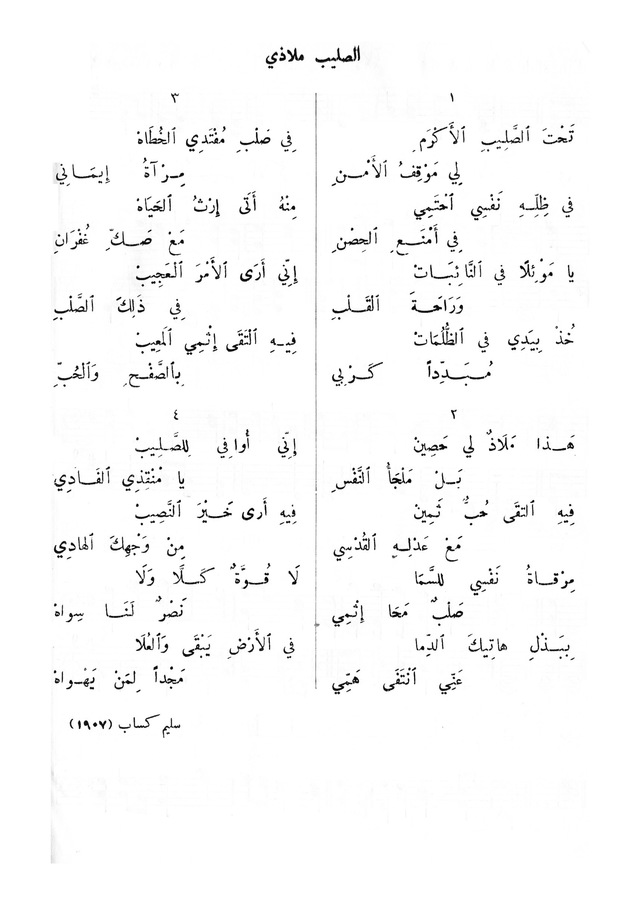 الصليب ملاذي
١
تَحْتَ ٱلصَّلِيبِ ٱلأَكْرَمِ
لِي مَوْقِفُ ٱلأَمْنِ
في ظِلِّهِ نَفْسِي ٱحْتَمِي
فِي أَمْنَعِ ٱلحِصْنِ
يا مَوْئِلًا في ٱلنَّائِبَاتْ
وَرَاحَةَ ٱلقَلْبِ
خُذْ بِيَدِي في ٱلظُّلُمَاتْ
مُبَدِّداً كَرْبِي
٢
هَذا مَلَاذٌ لي حَصِينْ
بَلْ مَلْجَأُ ٱلنَّفْسِ
فِيهِ ٱلتقَى حُبٌّ ثَمِينْ
مَعْ عَدْلِهِ ٱلقُدْسِي
مِرْقاةُ نَفْسِي للسَّمَا
صَلْبٌ مَحَا إِثْمِي
بِبَذْلِ هاتِيكَ ٱلدِّما
عَنِّي ٱنْتَفَى هَمِّي
٣
فِي صَلْبِ مُفْتَدِي ٱلخُطَاهْ
مِرْآةُ إِيمَانِي
مِنْهُ أَتَى إِرْثُ ٱلحَيَاهْ
مَعْ صَكِّ غُفْرَانِ
إِنِّي أَرَى ٱلأَمْرَ ٱلعَجِيبْ
فِي ذٰلِكَ ٱلصَّلْبِ
فِيهِ ٱلتَقَى إِثْمِي ٱلمَعِيبْ
بِٱلصَّفْحِ وَٱلحُبِّ
٤
إِنِّي أُوافِي للصَّلِيبْ
يا مُنْقِذِي ٱلفَادِي
فِيهِ أَرى خَيْرَ ٱلنَّصِيبْ
مِنْ وَجْهِكَ ٱلهَادِي
لَا قُوَّةٌ كَلَّا وَلَا
نَصْرٌ لَنَا سِواهْ
في ٱلأَرْضِ يَبْقَى وَٱلعُلَا
مَجْداً لِمَنْ يَهْواهْ
سليم كساب (١٩٠٧)